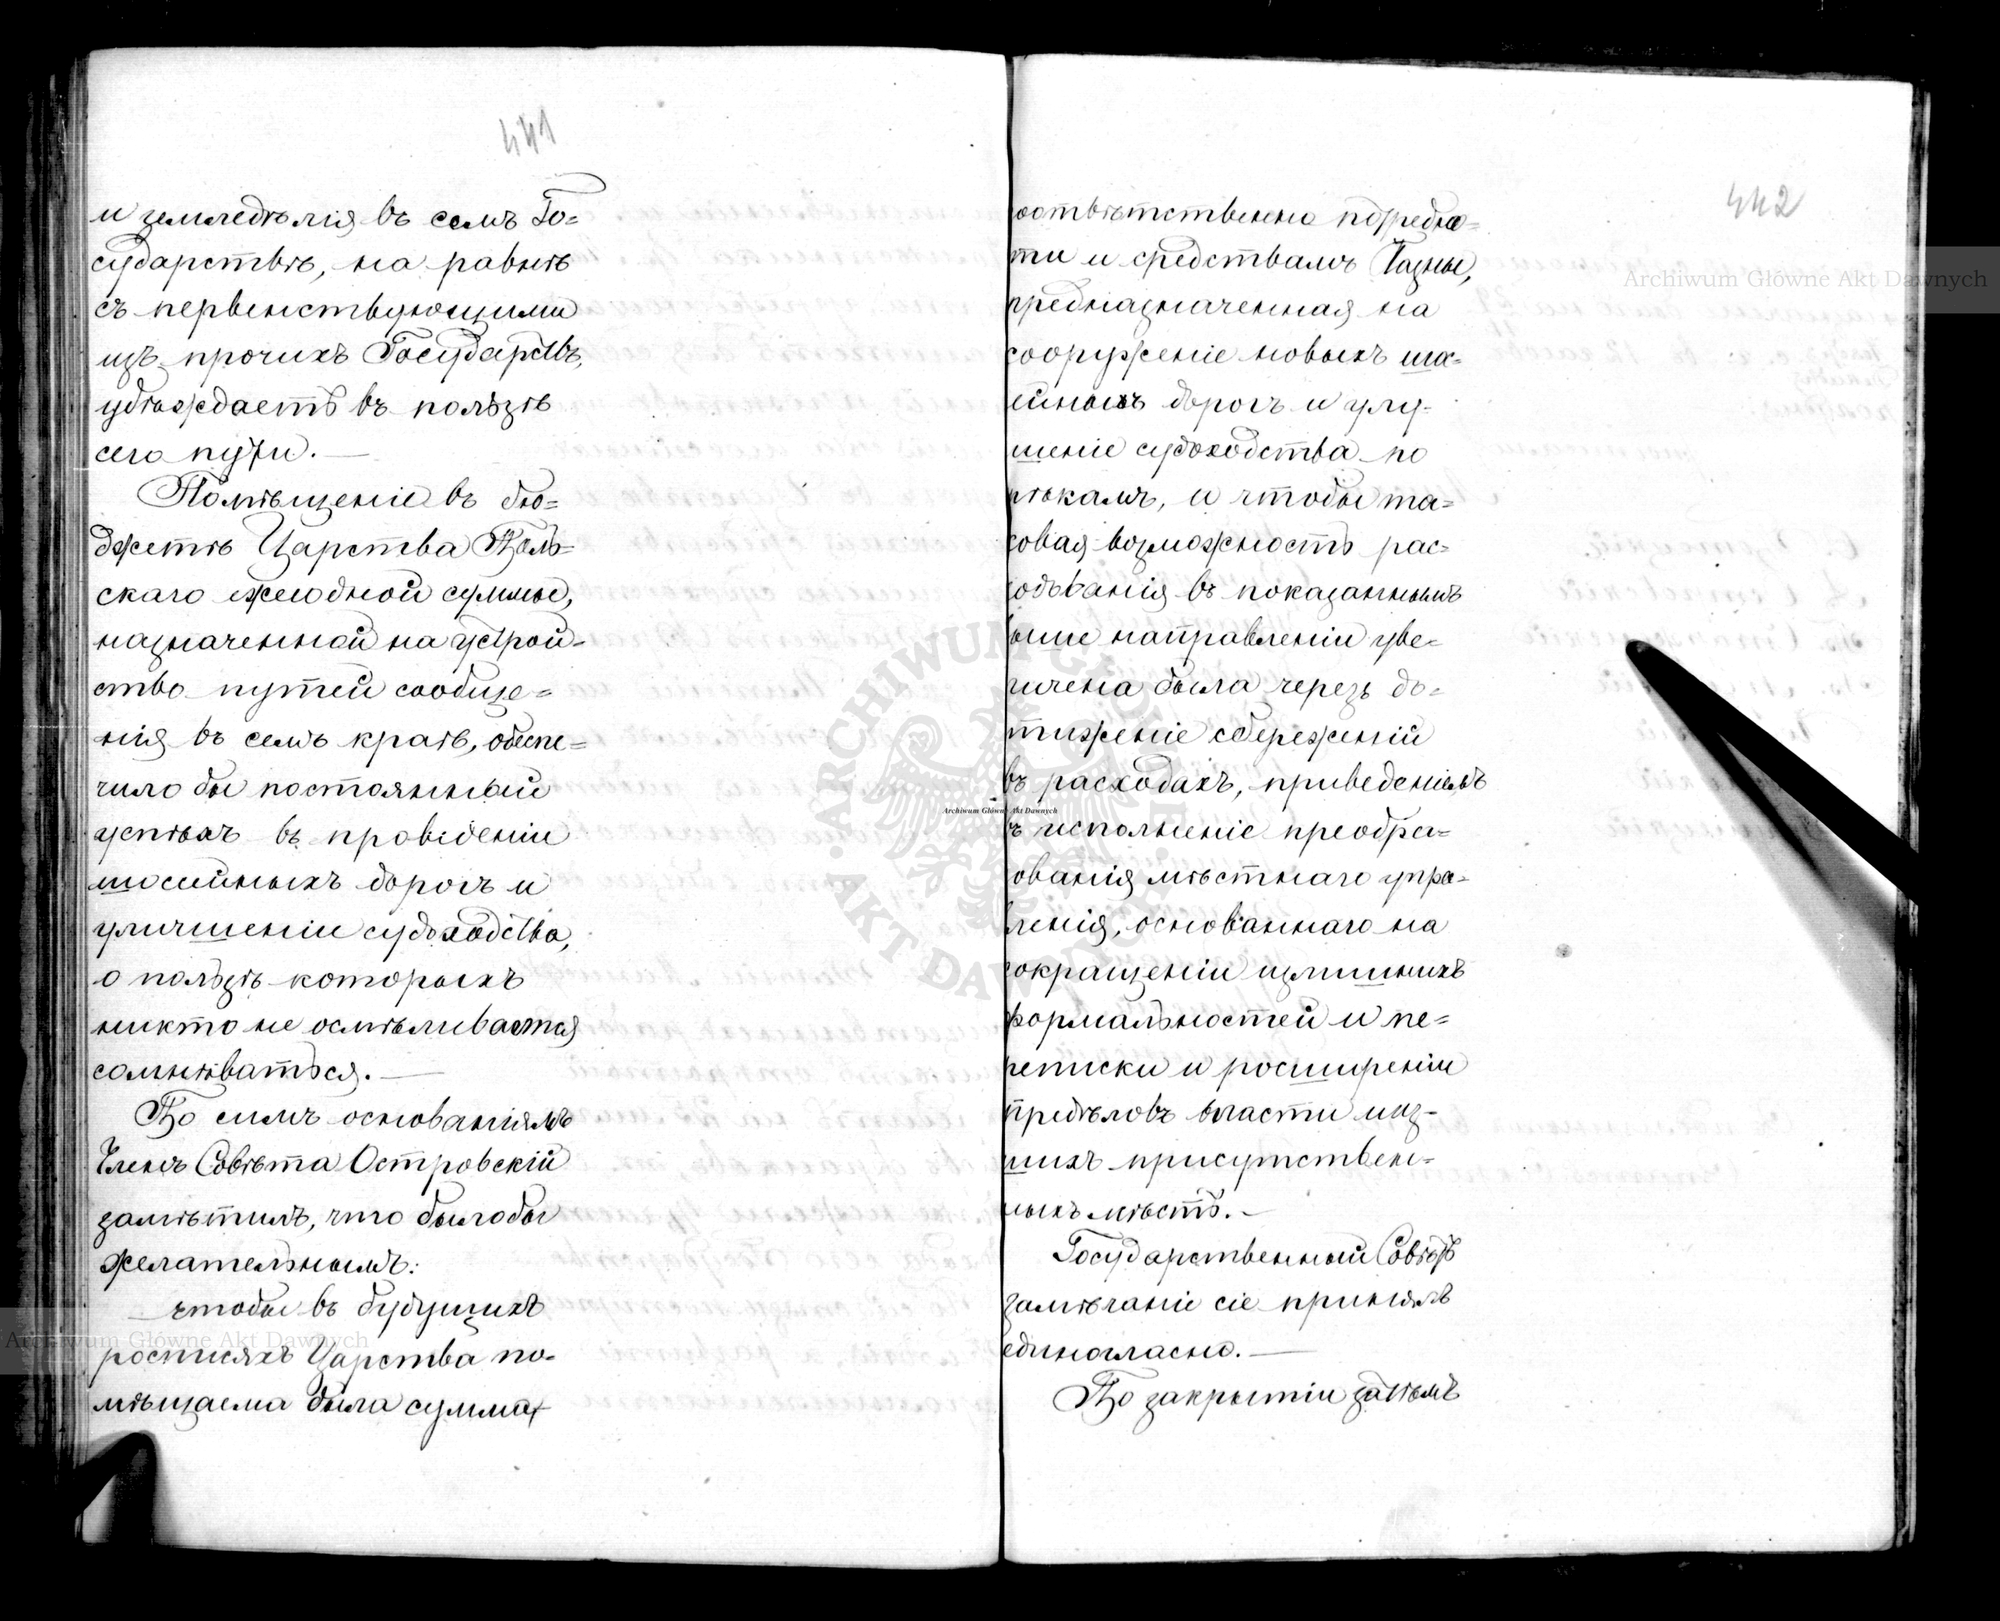 441
и земледѣлія въ семъ Го=
сударствѣ, на равнѣ
съ первенствующими
изъ прочихъ Государствъ,
убѣждаетъ въ пользѣ
сего пути. —
Помѣщеніе въ бю=
джетѣ Царства Поль=
скаго ежегодной суммы,
назначенной на устрой=
ство путей сообще=
нія въ семъ краѣ, обезпе=
чило бы постоянный
успѣхъ въ проведеніи
шосейныхъ дорогъ и
улучшеніи судоходства,
о пользѣ которыхъ
никто не осмѣливается
сомнѣваться. —
По симъ основаніямъ
Членъ Совѣта Островскій
замѣтилъ, что было бы
желательнымъ:
— чтобы въ будущихъ
росписяхъ Царства по=
мѣщаема была сумма,
442
соотвѣтственно потребно=
сти и средствамъ Казны,
предназначенная на
сооруженіе новыхъ шо=
сейныхъ дорогъ и улу=
шеніе судоходства по
рѣкамъ, и чтобы та=
ковая возможность рас=
ходованія въ показанномъ
выше направленіи уве=
личена была черезъ до=
стиженіе сбереженій
въ расходахъ, приведеніемъ
въ исполненіе преобра=
зованія мѣстнаго упра=
вленія, основаннаго на
сокращеніи излишнихъ
формальностей и пе=
реписки и росширеніи
предѣловъ власти низ=
шихъ присутствен=
ныхъ мѣстъ. —
Государственный Совѣтъ
замѣчаніе сіе принялъ
единогласно. —
По закрытіи затѣмъ
Archiwum Główne Akt Dawnych
Archiwum Główne Akt Dawnych
Archiwum Główne Akt Dawnych
ARCHIWUM GŁÓWNE AKT DAWNYCH